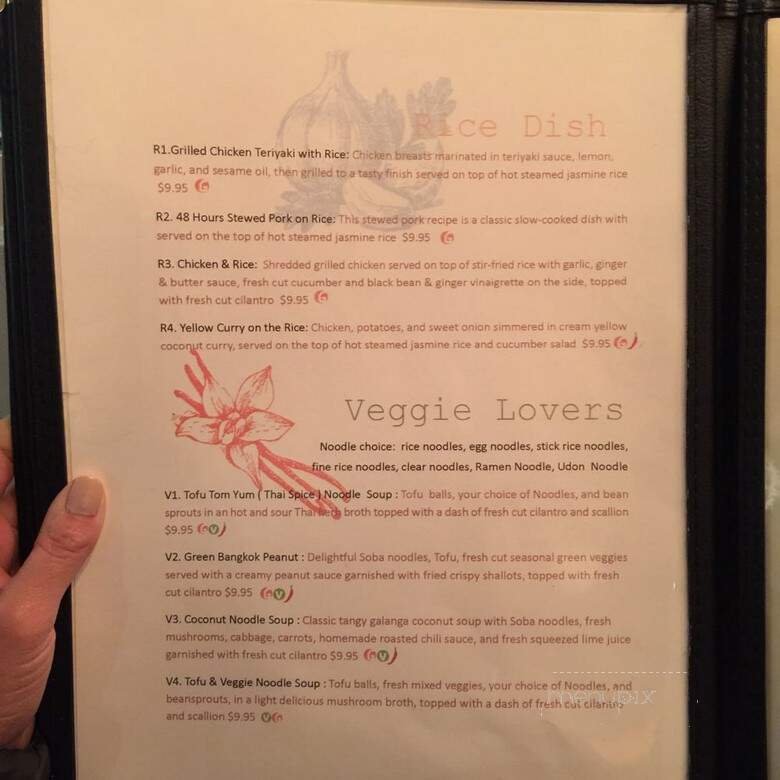 Rice Dish
R1.Grilled Chicken Teriyaki with Rice: Chicken breasts marinated in teriyaki sauce, lemon,
garlic, and sesame oil, then grilled to a tasty finish served on top of hot steamed jasmine rice
$9.95
R2. 48 Hours Stewed Pork on Rice: This stewed pork recipe is a classic slow-cooked dish with
served on the top of hot steamed jasmine rice $9.95
R3. Chicken & Rice: Shredded grilled chicken served on top of stir-fried rice with garlic, ginger
& butter sauce, fresh cut cucumber and black bean & ginger vinaigrette on the side, topped
with fresh cut cilantro $9.95
R4. Yellow Curry on the Rice: Chicken, potatoes, and sweet onion simmered in cream yellow
coconut curry, served on the top of hot steamed jasmine rice and cucumber salad $9.95
Veggie Lovers
Noodle choice: rice noodles, egg noodles, stick rice noodles,
fine rice noodles, clear noodles, Ramen Noodle, Udon Noodle
V1. Tofu Tom Yum ( Thai Spice ) Noodle Soup : Tofu balls, your choice of Noodles, and bean
sprouts in an hot and sour Thai herb broth topped with a dash of fresh cut cilantro and scallion
$9.95 V
V2. Green Bangkok Peanut : Delightful Soba noodles, Tofu, fresh cut seasonal green veggies
served with a creamy peanut sauce garnished with fried crispy shallots, topped with fresh
cut cilantro $9.95 V
V3. Coconut Noodle Soup : Classic tangy galanga coconut soup with Soba noodles, fresh
mushrooms, cabbage, carrots, homemade roasted chili sauce, and fresh squeezed lime juice
garnished with fresh cut cilantro $9.95 V
V4. Tofu & Veggie Noodle Soup : Tofu balls, fresh mixed veggies, your choice of Noodles, and
beansprouts, in a light delicious mushroom broth, topped with a dash of fresh cut cilantro
and scallion $9.95 V
menupix